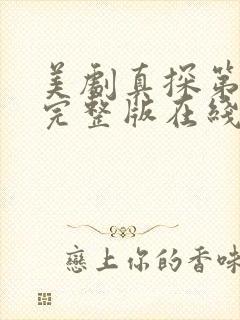 美劇真探第
完整版在綫
戀上你的香味